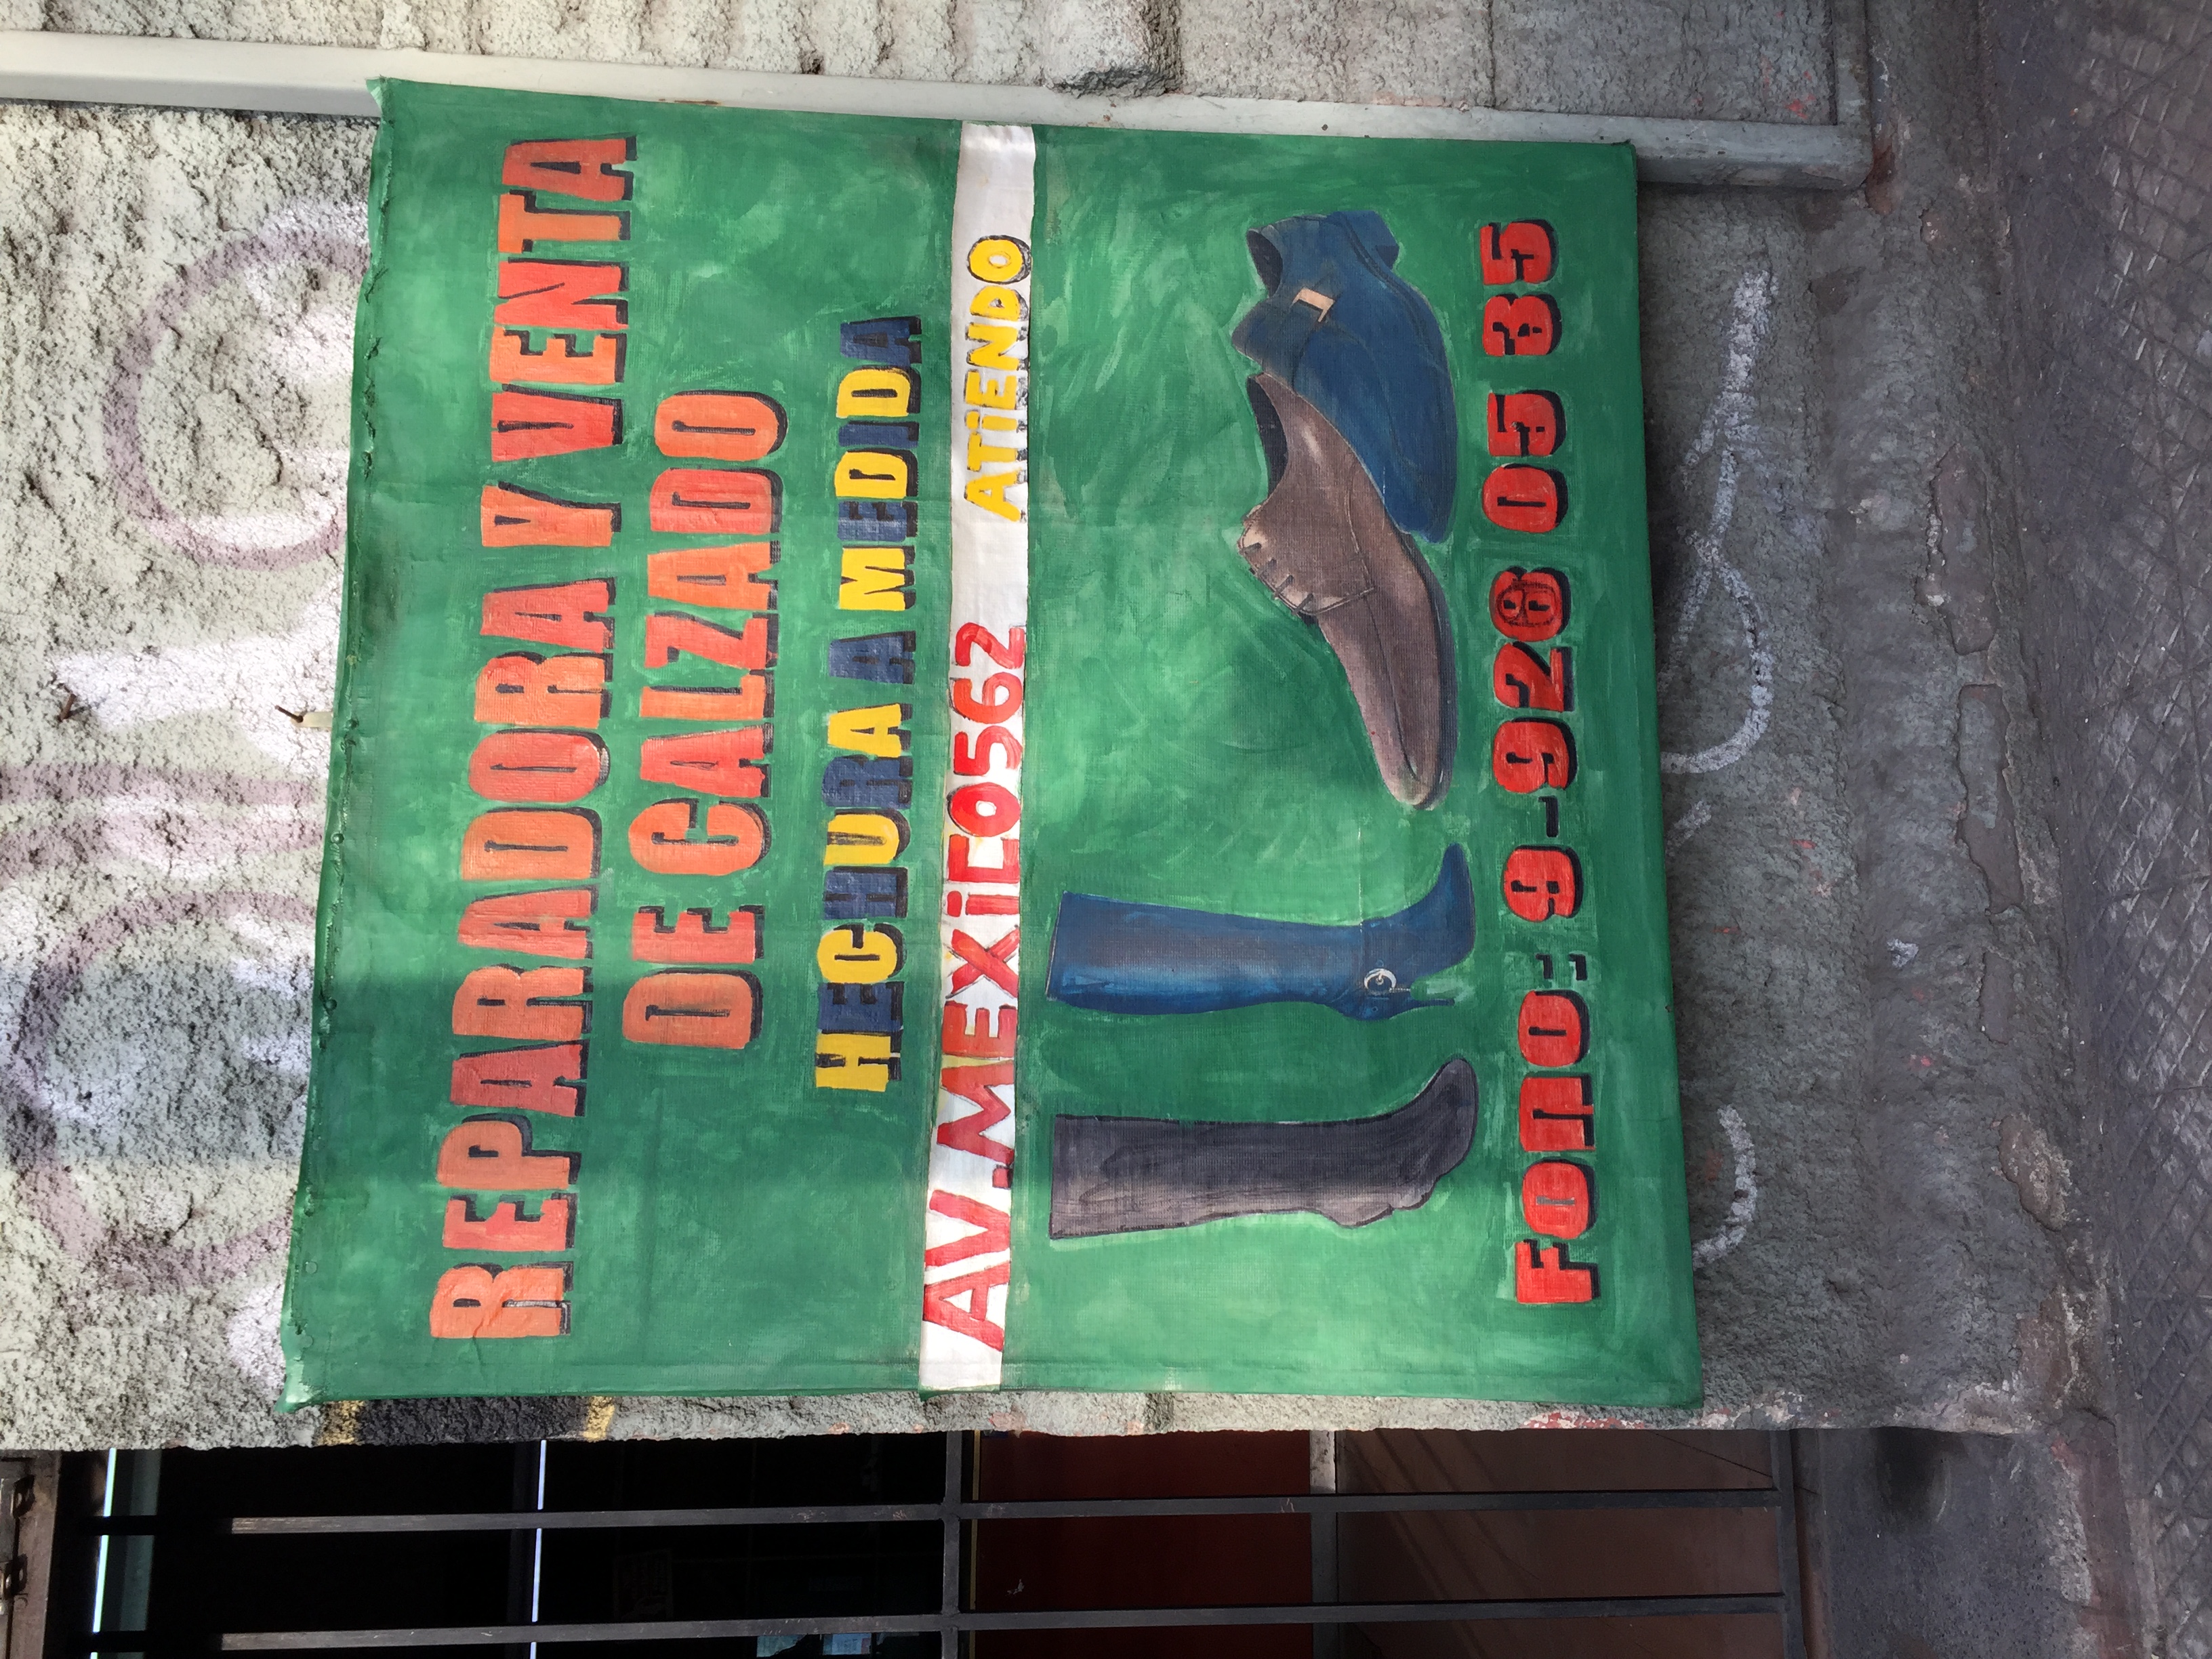 REPARADORA Y VENTA
DE CALZADO
HECHURA A MEDIDA
AV.MEXiCO562 ATiENDO
FONO: 9-926 05 35